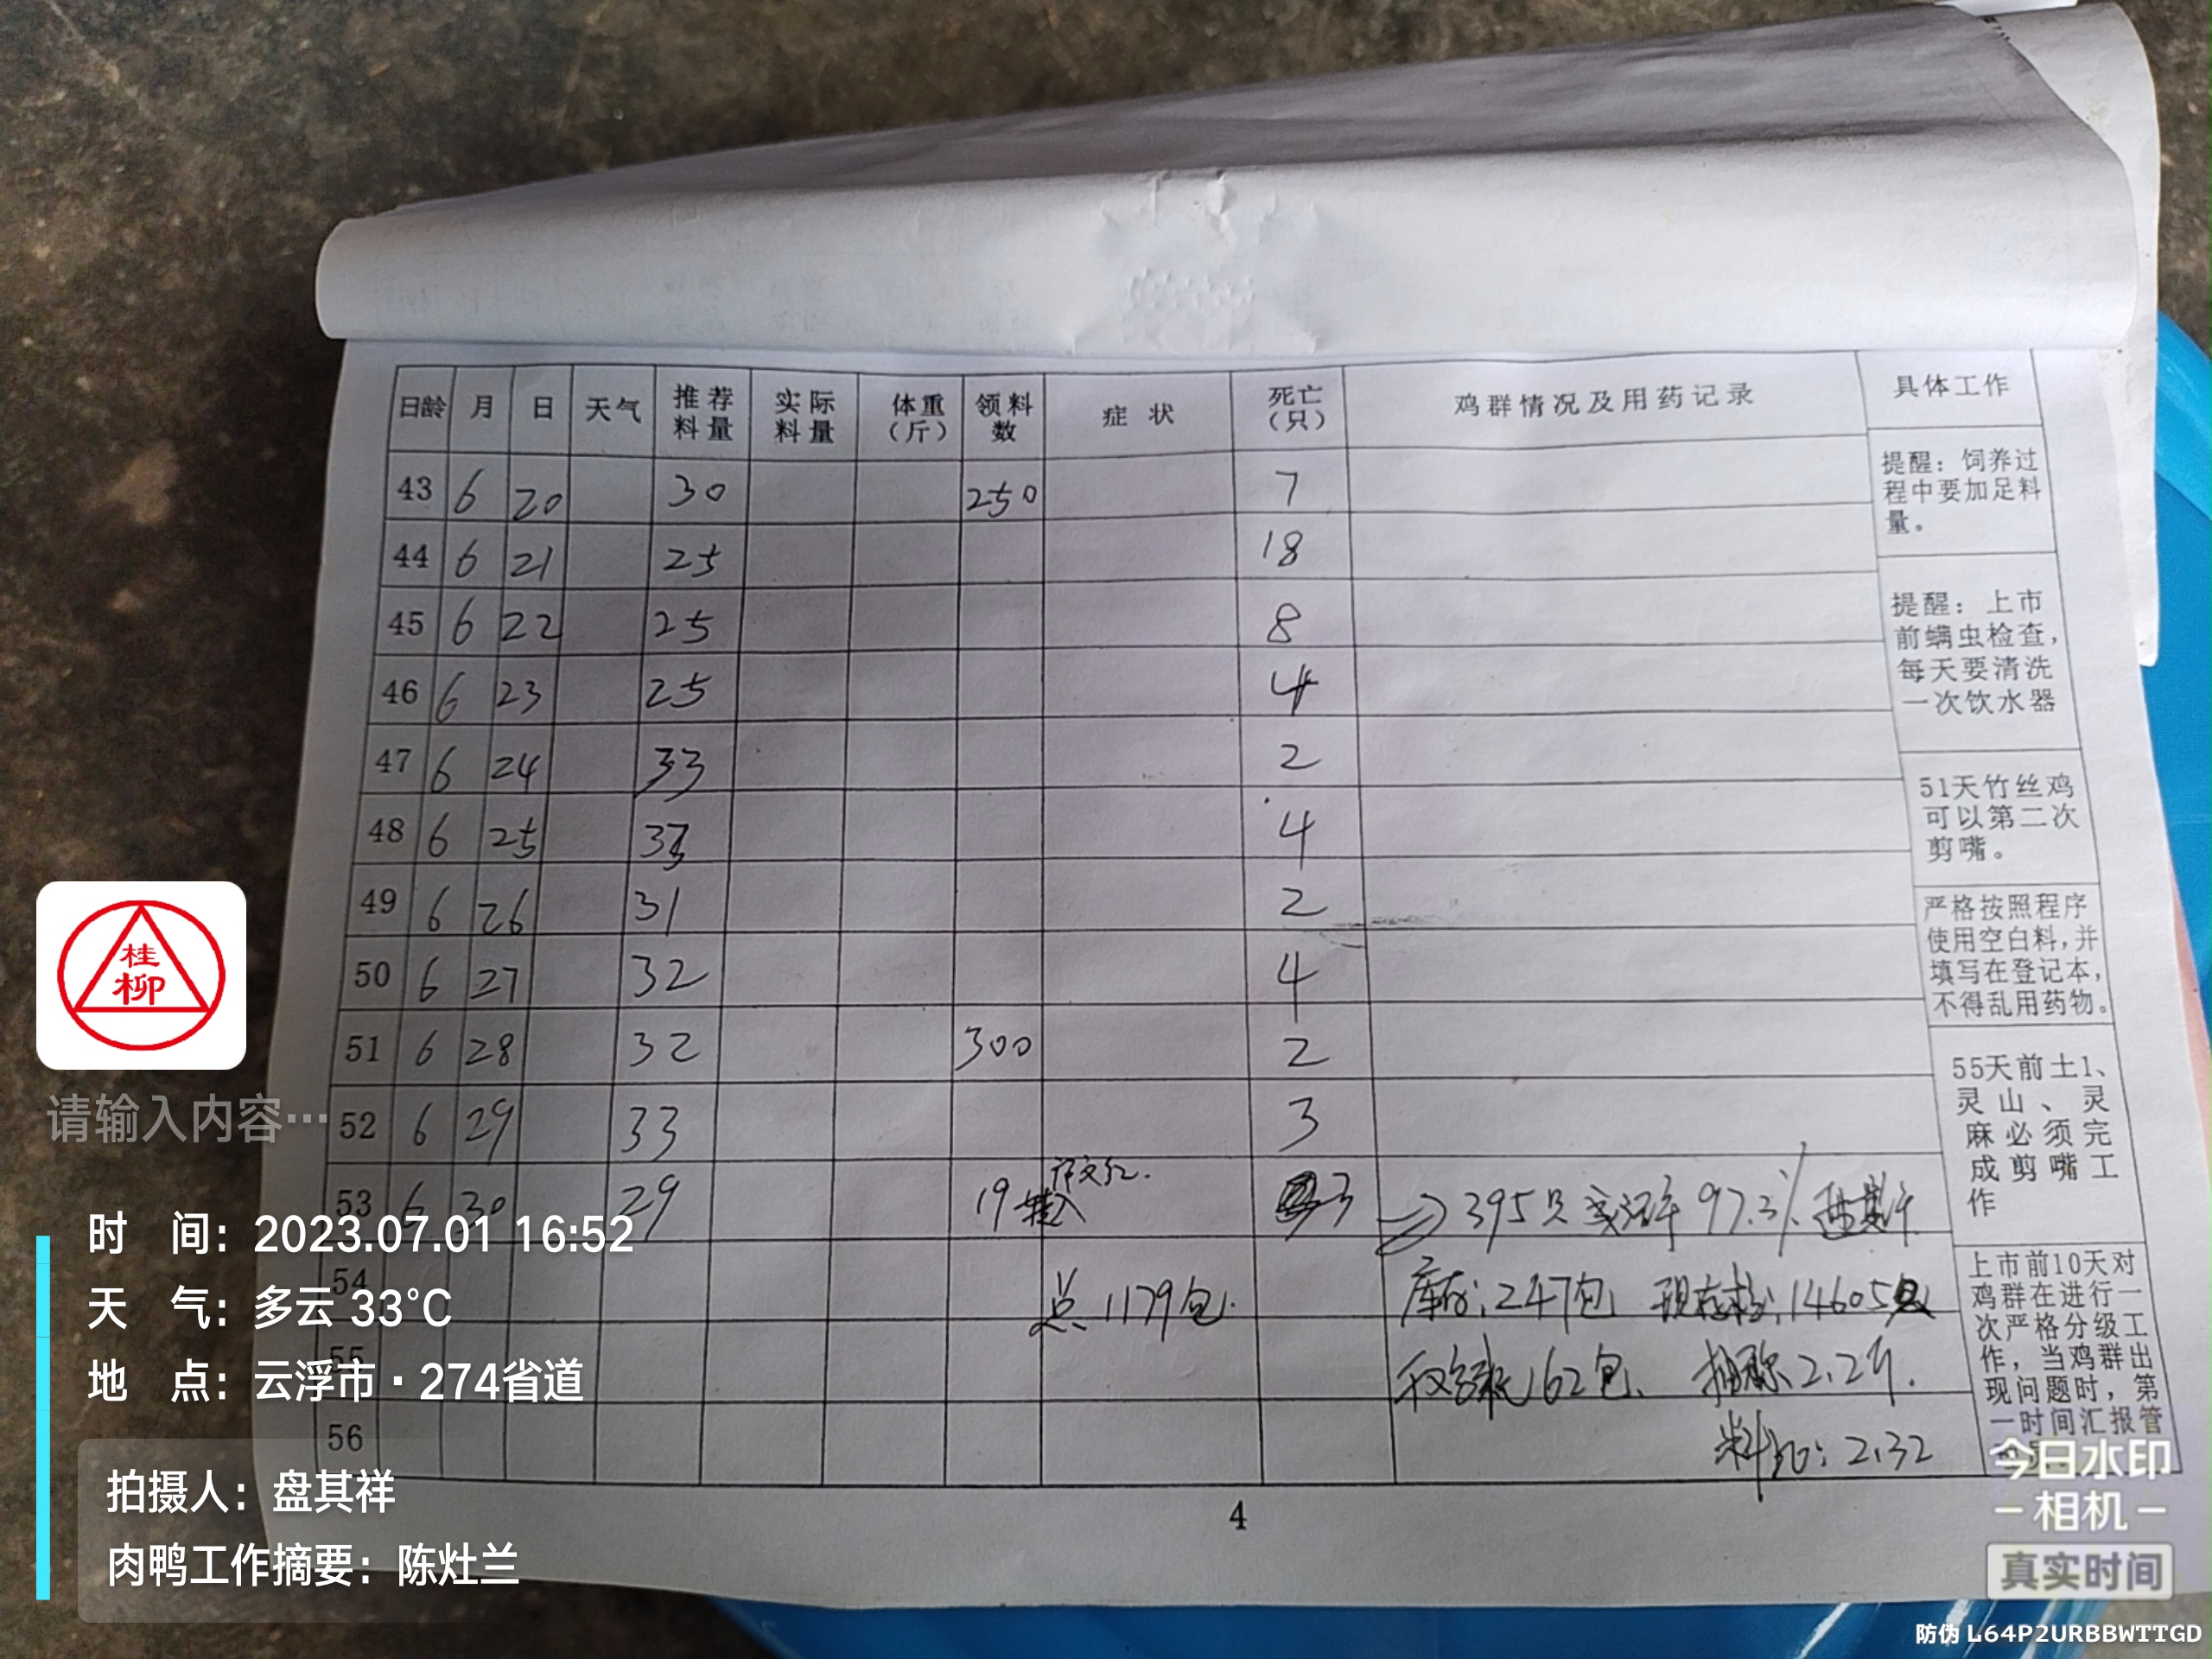 日龄 月 日 天气 推荐料量 实际料量 体重（斤） 领料数 症状 死亡（只） 鸡群情况及用药记录 具体工作
43 6 20 30 250 7
44 6 21 25 18
45 6 22 25 8
46 6 23 25 4
47 6 24 33 2
48 6 25 33 4
49 6 26 31 2
50 6 27 32 4
51 6 28 32 300 2
52 6 29 33 3
53 6 30 29 19 转入 3 395只 成活率 97.3%
54 总 1179包. 库存:247包 现存栏:14605只
55 162包、 抽称2.2斤.
56 料比:2.32
提醒：饲养过
程中要加足料
量。
提醒：上市
前螨虫检查，
每天要清洗
一次饮水器
51天竹丝鸡
可以第二次
剪嘴。
严格按照程序
使用空白料，并
填写在登记本，
不得乱用药物。
55天前土1、
灵山、灵
麻必须完
成剪嘴工
作
上市前10天对
鸡群在进行一
次严格分级工
作，当鸡群出
现问题时，第
一时间汇报管
4
桂
柳
请输入内容…
时 间：2023.07.01 16:52
天 气：多云 33°C
地 点：云浮市·274省道
拍摄人：盘其祥
肉鸭工作摘要：陈灶兰
今日水印
－相机－
真实时间
防伪 L64P2URBBWTTGD